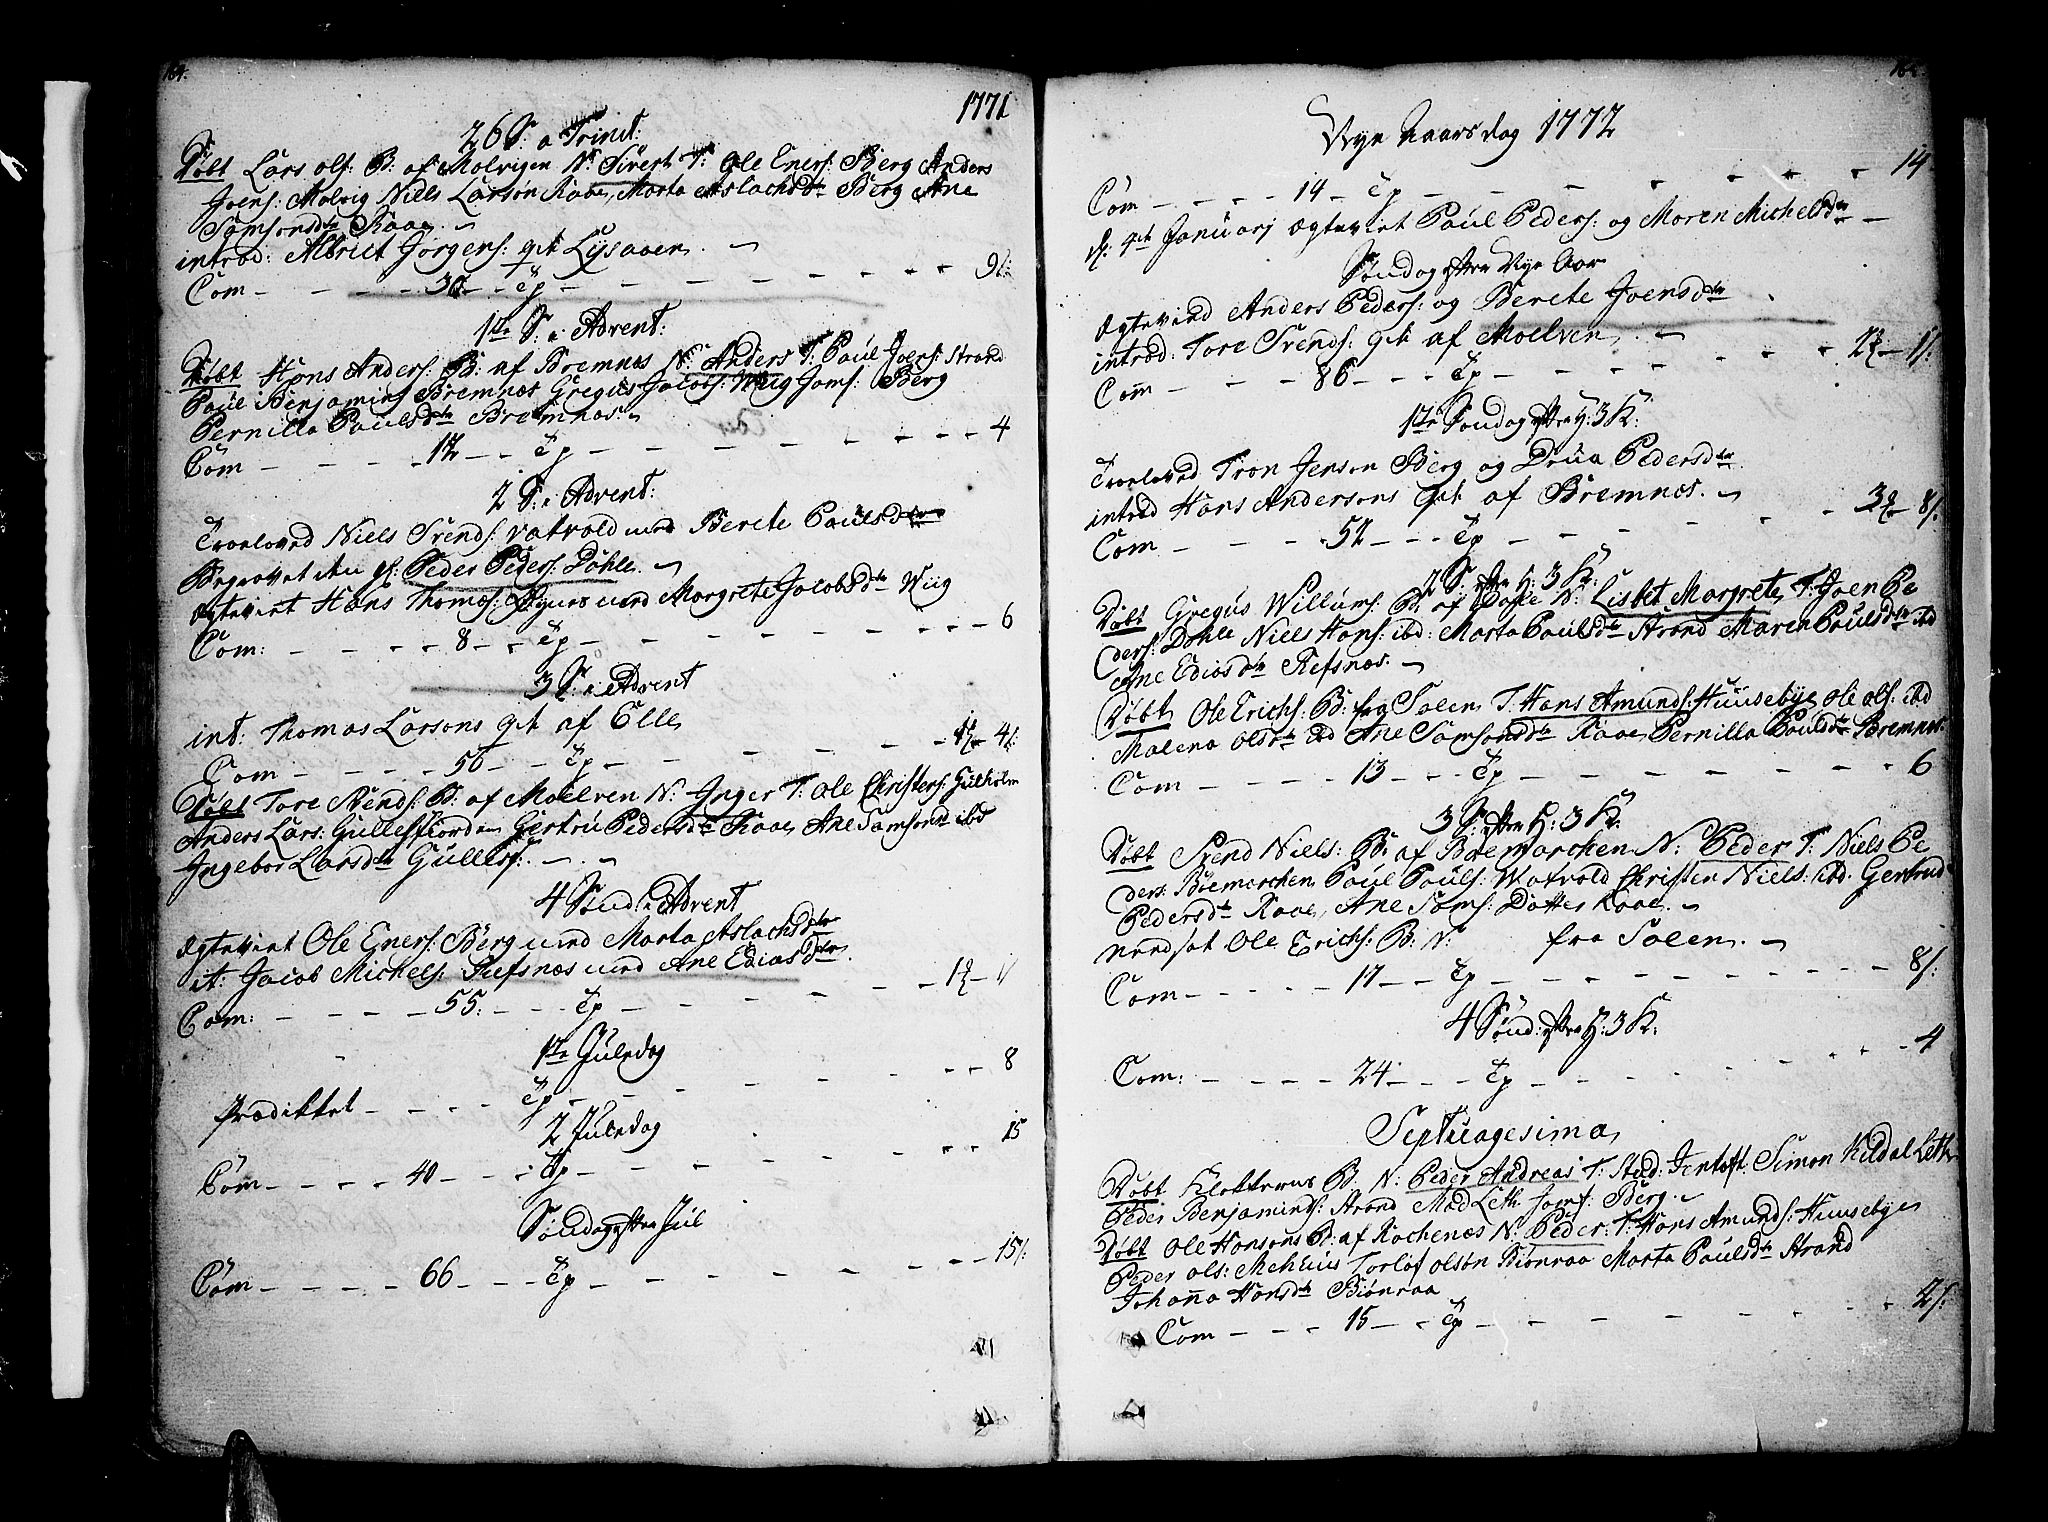 164.
1771
26 S: a Trinit:
Døbt Lars ols: B: af Molvigen N: Sivert T: Ole Eners: Berg Anders
Joens: Molvig Niells Larsøn Kaae, Marta Aslachsdtr Berg Ane
Samsonsdtr Kaae.
introd: Albrict Jørgens: qvi Lysaaen.
Com - - - - 30 - - Tp - - - - - - 9
1te S: i Advent:
Døbt Hans Anders: B: af Bremnæs N: Anders T: Paul Joers: Strand
Paul Benjamins Bremnæs Gregus Jacobs: Wiig Jomf: Berg
Pernilla Paulsdtr Bremnæs.
Com - - - - 12 - - Tp - - - - - - 4
2 S: i Advent:
Troeloved Niels Svends: Vatvold med Berete Paulsdtr
Begravet den Sl: Peder Peders: Døhle.
Ægteviet Hans Thomes: Bynes med Margrete Jacobsdtr Wiig
Com: - - - - 8 - - Tp - - - - - - 6
3 S: i Advent
int: Thomas Larsøns qvi af Elle
Com - - - - 56 - - Tp - - - - - - 4/:
Døbt Tore Svends: B: af Moelven N: Inger T: Ole Christens: Gulholm
Anders Lars: Gullesfiorden Giertru Pedersdtr Kaae, Ane Samsonsd ibd
Ingebor Larsdtr Gullesf:
4 Sønd: i Advent
Ægteviet Ole Eners: Berg med Marta Aslachsdtr
it: Jacob Michels: Refsnæs med Ane Ediasdtr
Com: - - - - 55: - - Tp - - - - - -
1te Juledag
Prædikket - - - - Tp - - - - - - 8
2 Juledag
Com - - - - 40 - - Tp - - - - - - 15
Søndag efter Jul
Com - - - - 66 - - Tp - - - - - - 15/:
Nye Aarsdag 1772
Com - - - - 14 - Tp - - - - - - 14
d: 4de Januarj ægteviet Paul Peders: og Maren Michelsdtr
Søndag efter Nye Aar
Ægtevied Anders Peders: og Berete Joensdtr
introd: Tore Svends: qvi af Moelven.
Com - - - - 86 - - Tp - - - - - - 1/:
1te Søndag efter H: 3 K:
Troeloved Tron Jensen Berg og Drua Pedersdtr
introd Hans Andersøns Qvi af Bremnæs.
Com - - - - 52 - - Tp - - - - - - 8/:
2 S: efter H: 3 K:
Døbt Gregus Willums: B: af N: Lisbet Margrete, T: Joen Pe
ders: Døhle Niels Hans: ibd: Marta Paulsdtr Strand Maren Paulsdtr ibd
Ane Ediasdtr Refsnæs.
Døbt Ole Erichs: B: fra Solen T: Hans Amunds: Huusebye Ole ols: ibd
Malena Olsdtr ibd Ane Samsonsdtr Kaae, Pernilla Paulsdtr Bremnæs.
Com - - - - 13 - - Tp - - - - - - 6
3 S: efter H: 3 K:
Døbt Svend Niels: B: af Bøemarchen N: Peder T: Niels Pe
ders: Bøemarchen Paul Pauls: Watvold Christen Niels: ibd. Giertrud
Pedersdtr Kaae, Ane Sams: Datter Kaae.
Nedsat Ole Erichs: B: N: fra Solen.
Com - - - - 17 - - Tp - - - - - - 8/:
4 Sønd: efter H: 3 K:
Com: - - - - 24 - - Tp - - - - - - 4
Septuagesima
Døbt Klokkerens B: N: Peder Andreas T: Stud: Jentoft, Simon Kildal Leth
Peder Benjamins: Strand Mad Leth Jomf: Berg.
Døbt Ole Hansøns B: af Kochenæs N: Peder: T: Hans Amunds: Huusebye
Peder ols: Mehuus Torlof olsøn Biønraa Marta Paulsdtr Strand
Johanna Hansdtr Biønraa
Com - - - - 15 - - Tp - - - - - - 2/: